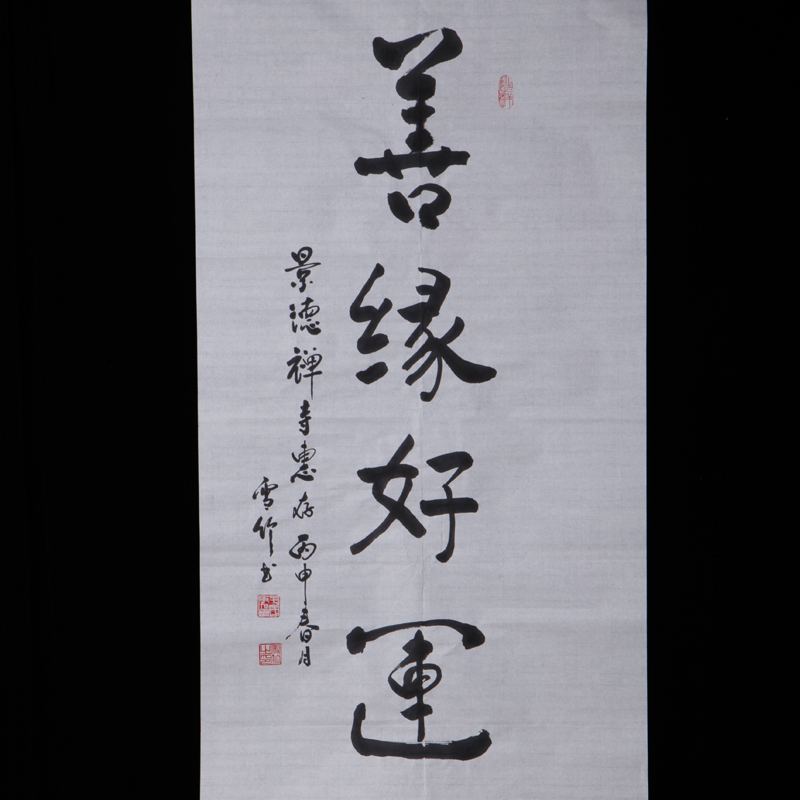 善缘好運
景德禅寺惠存丙申春月
雪竹书